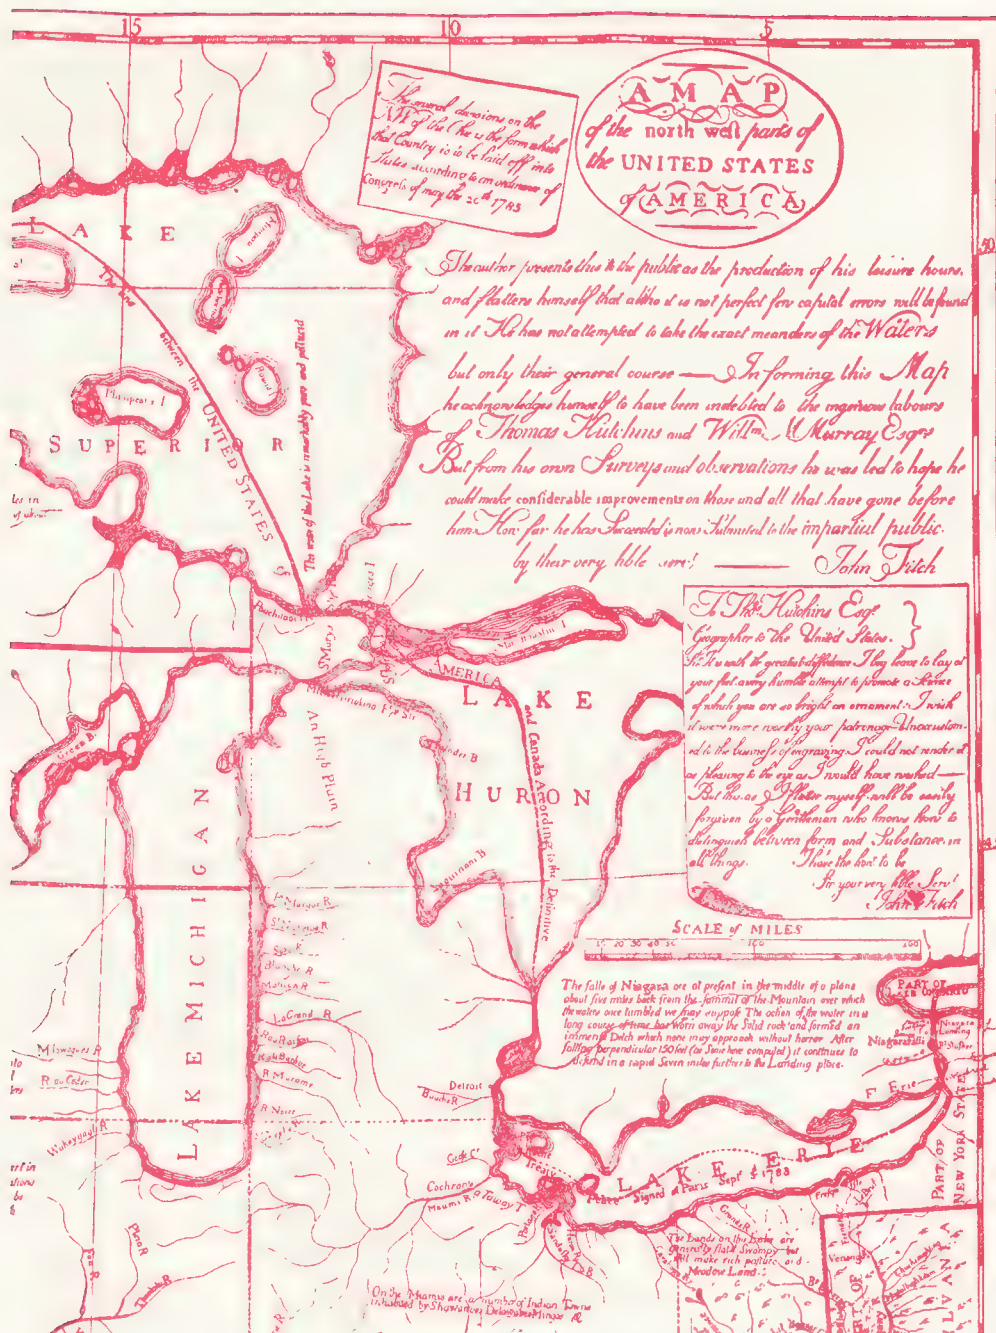 15
10
5
The several divisions on the
NW of the Ohio is the form which
that Country is to be laid off into
States according to an ordinance of
Congress of may the 20th 1785
A MAP
of the north west parts of
the UNITED STATES
of AMERICA
50
The author presents this to the public as the production of his leisure hours.
and flatters himself that altho it is not perfect few capital errors will be found
in it He has not attempted to take the exact meanders of the Waters
but only their general course — In forming this Map
he acknowledges himself to have been indebted to the ingenious labours
of Thomas Hutchins and Willm. McMurray Esqrs
But from his own Surveys and observations he was led to hope he
could make considerable improvements on those and all that have gone before
him. How far he has Succeeded is now Submitted to the impartial public.
by their very hble servt. — John Fitch
To Thos. Hutchins Esqr.
Geographer to the United States.
Sir It is with the greatest diffidence I beg leave to lay at
your feet a very humble attempt to promote a Science
of which you are so bright an ornament. I wish
it were more worthy your patronage. Unaccustom-
ed to the business of engraving I could not render it
as pleasing to the eye as I would have wished —
But this as I flatter myself will be easily
forgiven by a Gentleman who knows how to
distinguish between form and Substance in
all things. I have the honr. to be
Sir your very hble Servt.
John Fitch
LAKE
SUPERIOR
The line between the UNITED STATES
The water of this Lake is remarkably pure and pellucid
Phillipeaux I
LAKE
HURON
AMERICA
and Canada According to the Definitive
An High Plain
Thunder B
Saguinam B
Green B.
LAKE MICHIGAN
Marquet R
Blanche R
LaGrand R
R Marame
R Noire
R Raisin
SCALE of MILES
10 20 30 40 50
100
200
The falls of Niagara are at present in the middle of a plane
about five miles back from the summit of the Mountain over which
the waters once tumbled we may suppose The action of the water in a
long course of time has worn away the Solid rock and formed an
immense Ditch which none may approach without horror After
falling perpendicular 150 feet (as Some have computed) it continues to
descend in a rapid Seven miles further to the Landing place.
PART OF
LAKE ONTARIO
Niagara
Landing
Niagara falls
F. Erie
Detroit
LAKE ERIE
Treaty
Peace Signed at Paris Sept 3d 1783
PART OF
NEW YORK STATE
Cochrans
Sandusky
The Lands on this Lake are
generally flat & Swampy but
will make rich pasture and
Meadow Land.
Venango
On the Miamis are a number of Indian Towns
inhabited by Shawanoes, Delawares Mingos &c
Wakeygagh R